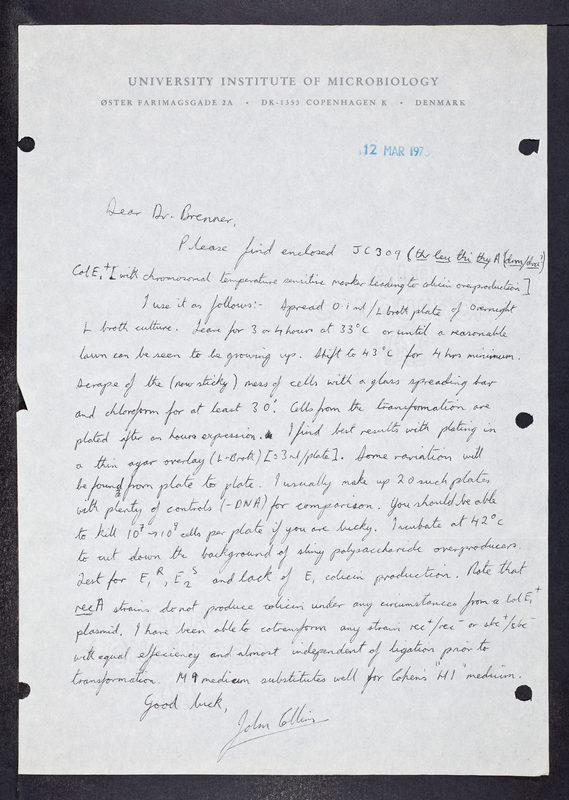 UNIVERSITY INSTITUTE OF MICROBIOLOGY
ØSTER FARIMAGSGADE 2A • DK-1353 COPENHAGEN K • DENMARK
12 MAR 197
Dear Dr. Brenner,
Please find enclosed JC309 (thr leu thi thy A
Col E1+ [with chromosomal temperature sensitive marker leading to colicin overproduction]
I use it as follows:- Spread 0.1 ml/L broth plate of overnight
L broth culture. Leave for 3 or 4 hours at 33°C or until a reasonable
lawn can be seen to be growing up. Shift to 43°C for 4 hrs minimum.
Scrape of the (now sticky) mess of cells with a glass spreading bar
and chloroform for at least 30'. Cells from the transformation are
plated after an hours expression. I find best results with plating in
a thin agar overlay (L-Broth) [≃3 ml/plate]. Some variation will
be found from plate to plate. I usually make up 20 such plates
with plenty of controls (-DNA) for comparison. You should be able
to kill 10⁷→10⁸ cells per plate if you are lucky. Incubate at 42°C
to cut down the background of slimy polysaccharide overproducers.
Test for E1 R, E2 S and lack of E1 colicin production. Note that
recA strains do not produce colicin under any circumstances from a Col E1+
plasmid. I have been able to cotransform any strain rec+/rec- or sbc+/sbc-
with equal effeciency and almost independent of ligation prior to
transformation. M9 medium substitutes well for Cohen's "H1" medium.
Good luck,
John Collins